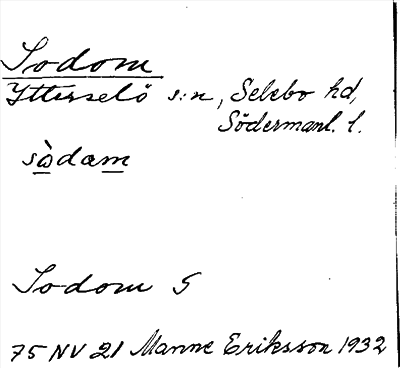 Sodom
Ytterselö s:n, Selebo hd,
Södermanl. l.
sòdam
Sodom S
75 NV 21 Manne Eriksson 1932